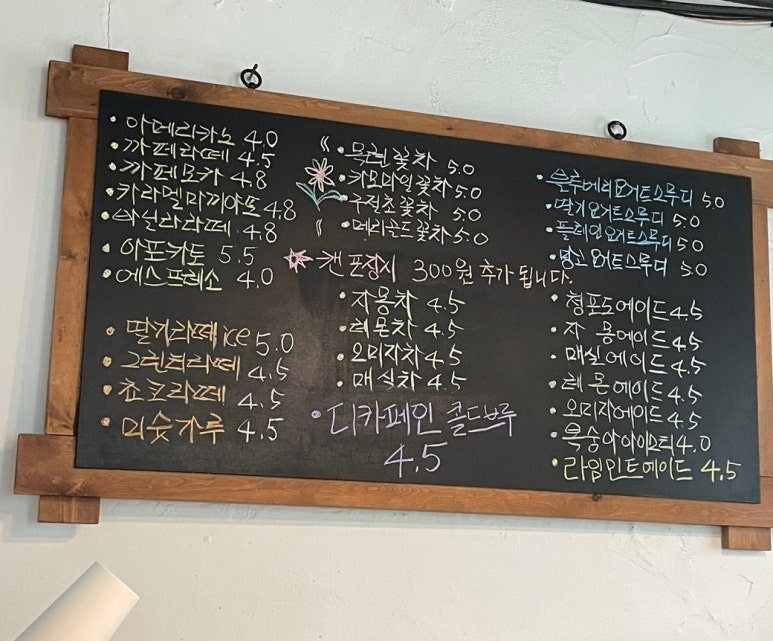 • 아메리카노 4.0
• 까페라떼 4.5
• 까페모카 4.8
• 카라멜마끼아또 4.8
• 바닐라라떼 4.8
• 아포카토 5.5
• 에스프레소 4.0
• 딸기라떼 ice 5.0
• 그린티라떼 4.5
• 쵸코라떼 4.5
• 미숫가루 4.5
• 목련꽃차 5.0
• 카모마일꽃차 5.0
• 구절초꽃차 5.0
• 메리골드꽃차 5.0
캔 포장시 300원 추가 됩니다.
• 자몽차 4.5
• 레몬차 4.5
• 오미자차 4.5
• 매실차 4.5
• 디카페인 콜드브루
4.5
• 블루베리요거트스무디 5.0
• 딸기요거트스무디 5.0
• 플레인요거트스무디 5.0
• 망고요거트스무디 5.0
• 청포도에이드 4.5
• 자몽에이드 4.5
• 매실에이드 4.5
• 레몬에이드 4.5
• 오미자에이드 4.5
• 복숭아아이스티 4.0
• 라임민트에이드 4.5